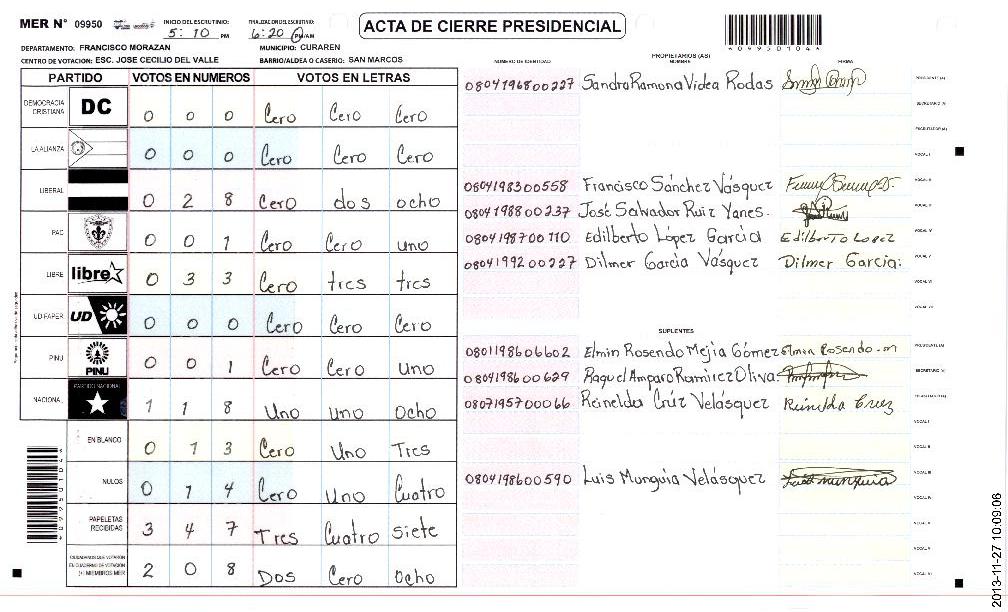 MER N° 09950
INICIO DEL ESCRUTINIO: 5:10 PM
FINALIZACION DEL ESCRUTINIO: 6:20 PM/AM
ACTA DE CIERRE PRESIDENCIAL
DEPARTAMENTO: FRANCISCO MORAZAN
MUNICIPIO: CURAREN
CENTRO DE VOTACION: ESC. JOSE CECILIO DEL VALLE
BARRIO/ALDEA O CASERIO: SAN MARCOS
PARTIDO VOTOS EN NUMEROS VOTOS EN LETRAS
DEMOCRACIA CRISTIANA DC 0 0 0 Cero Cero Cero
LA ALIANZA 0 0 0 Cero Cero Cero
LIBERAL 0 2 8 Cero dos ocho
PAC 0 0 1 Cero Cero uno
LIBRE libre 0 3 3 Cero tres tres
UD FAPER UD 0 0 0 Cero Cero Cero
PINU PINU 0 0 1 Cero Cero uno
NACIONAL PARTIDO NACIONAL 1 1 8 Uno uno Ocho
EN BLANCO 0 1 3 Cero Uno Tres
NULOS 0 1 4 Cero Uno Cuatro
PAPELETAS RECIBIDAS 3 4 7 Tres Cuatro siete
CIUDADANOS QUE VOTARON EN CUADERNO DE VOTACION (+) MIEMBROS MER 2 0 8 Dos Cero Ocho
NUMERO DE IDENTIDAD
PROPIETARIOS (AS)
NOMBRE
FIRMA
0804196800227 Sandra Ramona Videa Rodas PRESIDENTE (A)
SECRETARIO (A)
ESCRUTADOR (A)
VOCAL I
0804198300558 Francisco Sánchez Vásquez
0804198800237 José Salvador Ruiz Yanes.
0804198700110 Edilberto López García Edilberto Lopez VOCAL IV
0804199200227 Dilmer García Vásquez Dilmer Garcia: VOCAL V
VOCAL VI
SUPLENTES
0801198606602 Elmin Rosendo Mejía Gómez Elmin Rosendo .m PRESIDENTE (A)
0804198600629 Raquel Amparo Ramirez Oliva. SECRETARIO (A)
0807195700066 Reinelda Crúz Velásquez Reinelda Cruz
0804198600590 Luis Munguia Velásquez
2013-11-27 10:09:06